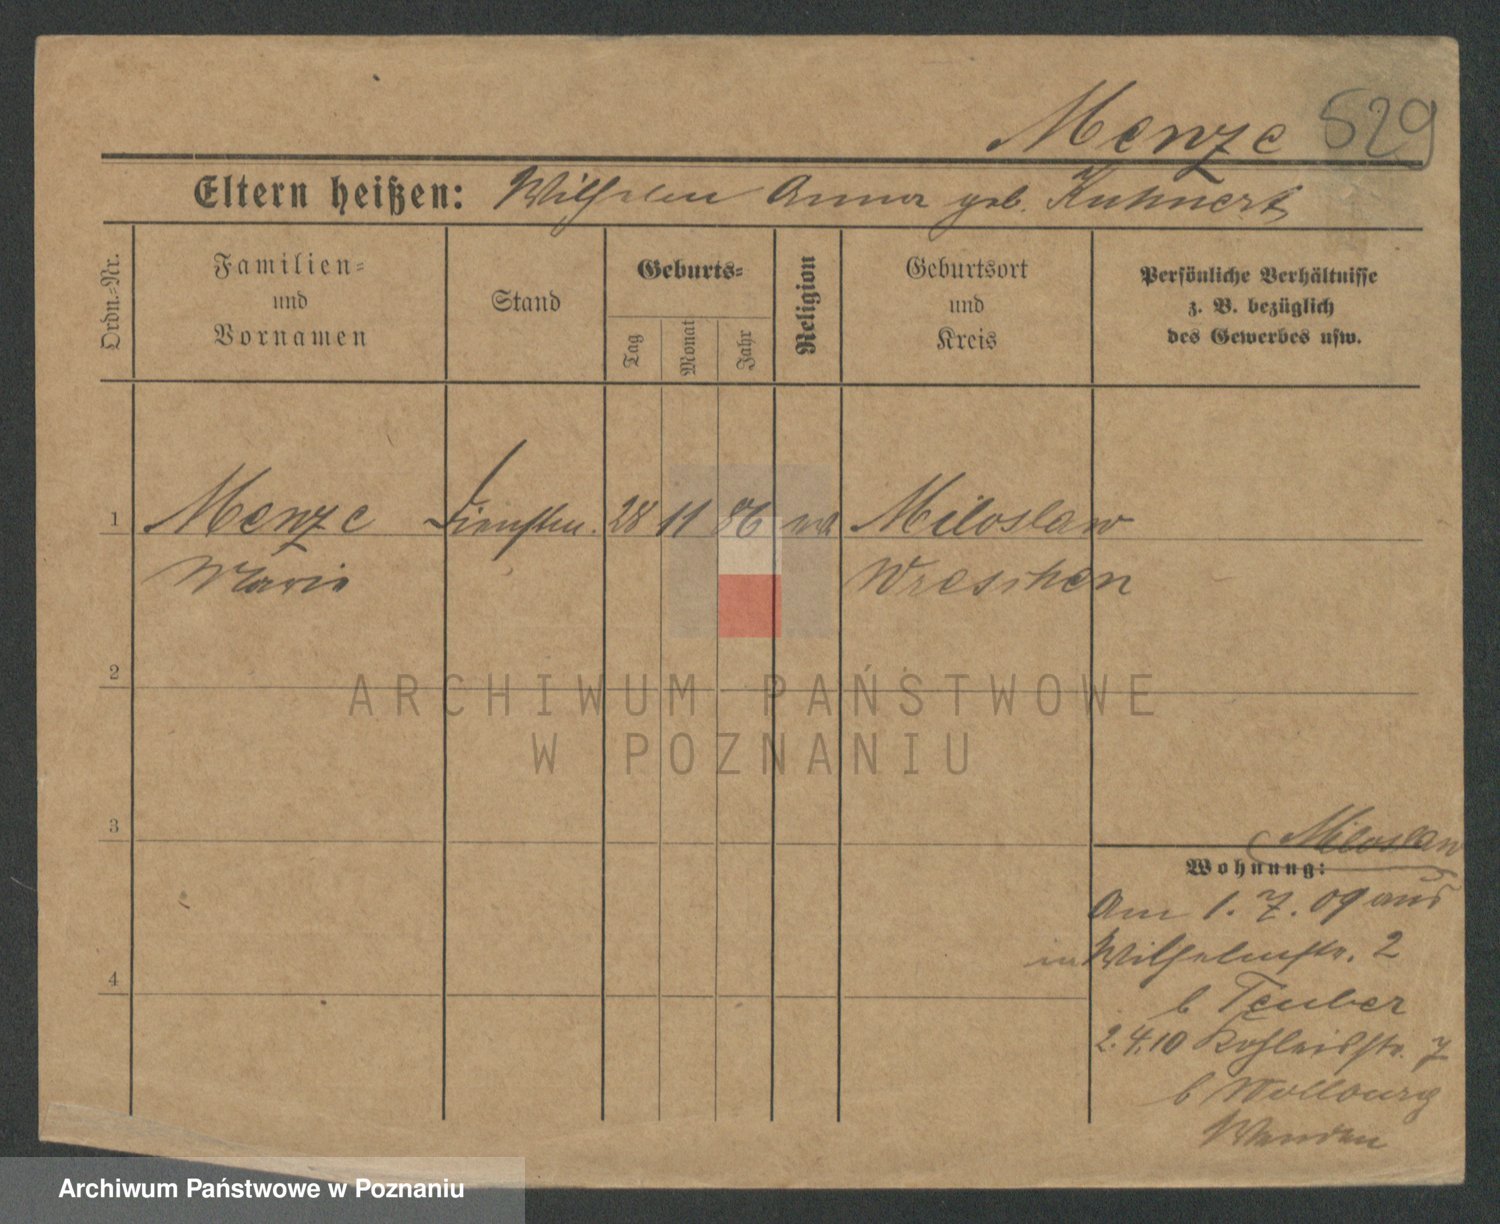 Menze 529
Eltern heißen: Wilhelm Anna geb. Kuhnert
Ordn.=Nr.
Familien=
und
Vornamen
Stand
Geburts=
Tag
Monat
Jahr
Religion
Geburtsort
und
Kreis
Persönliche Verhältnisse
z. B. bezüglich
des Gewerbes usw.
1 Menze 28 11 86 Miloslaw
Marie Wreschen
2
ARCHIWUM PAŃSTWOWE
W POZNANIU
3
Miloslaw
Wohnung:
Am 1. 7. 09 aus
in Wilhelmstr. 2
b Teuber
2.4.10 7
b
4
Archiwum Państwowe w Poznaniu